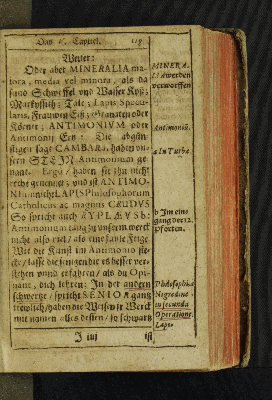 Das V. Capitel. 119
Weiter:
Oder aber MINERALIA ma-
jora, media vel minora, als da
sind Schweffel und Wasser Kyß;
Talc; Lapis Specu-
laris, Frauwen Eiß; Granaten oder
ANTIMONIVM oder
Antimonij Ertz:
stigen sagt CAMBARA, haben un-
sern STEIN Antimonium ge-
nant. Ergò / haben sie ihn nicht
recht genennet; und ist ANTIMO-
NIum nicht LAPIS Philosophorum
Catholicus ac magnus
So spricht auch
Antimonium taug zu unserm werck
nicht also viel / als eine faule Feige.
Wie die Kunst im Antimonio ste-
cke / lasse die jenigen die es besser ver-
stehen unnd erfahren / als du Opi-
nant, dich lehren: In der andern
schwertze / spricht SENIOR gantz
trewlich / haben die Weisen jr Werck
mit namen alles dessen / so schwartz
J iiij ist
MINERA-
LIA werden
verworffen
Antimoniū.
a In Turba.
b Im ein-
gang der 12.
pforten.
Philosophica
Nigredine
in secunda
Operatione
Lapis